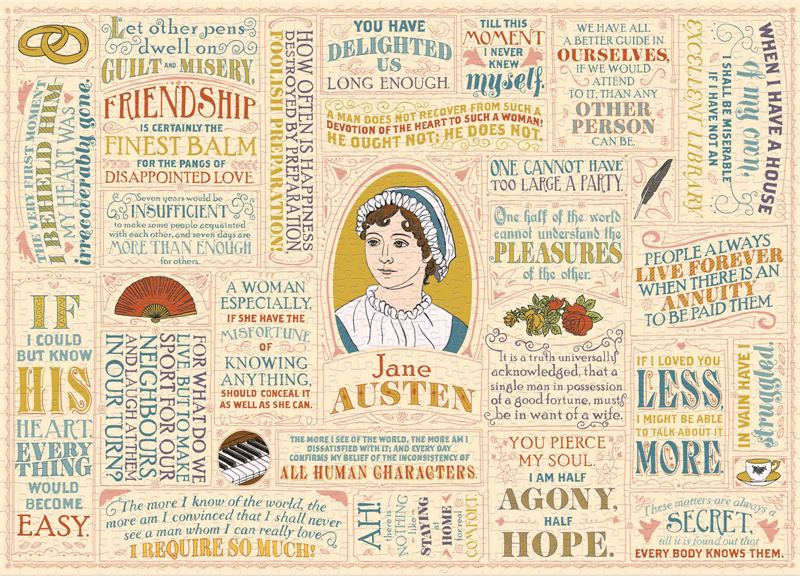 Let other pens
dwell on
GUILT AND MISERY.
FRIENDSHIP
IS CERTAINLY THE
FINEST BALM
FOR THE PANGS OF
DISAPPOINTED LOVE
Seven years would be
INSUFFICIENT
to make some people acquainted
with each other, and seven days are
MORE THAN ENOUGH
for others.
THE VERY FIRST MOMENT
I BEHELD HIM
MY HEART WAS
irrecoverably gone.
HOW OFTEN IS HAPPINESS
DESTROYED BY PREPARATION
FOOLISH PREPARATION!
YOU HAVE
DELIGHTED
US
LONG ENOUGH.
TILL THIS
MOMENT
I NEVER
KNEW
myself.
A MAN DOES NOT RECOVER FROM SUCH A
DEVOTION OF THE HEART TO SUCH A WOMAN!
HE OUGHT NOT; HE DOES NOT.
WE HAVE ALL
A BETTER GUIDE IN
OURSELVES,
IF WE WOULD
ATTEND
TO IT, THAN ANY
OTHER
PERSON
CAN BE.
WHEN I HAVE A HOUSE
of my own,
I SHALL BE MISERABLE
IF I HAVE NOT AN
EXCELLENT LIBRARY
ONE CANNOT HAVE
TOO LARGE A PARTY.
One half of the world
cannot understand the
PLEASURES
of the other.
PEOPLE ALWAYS
LIVE FOREVER
WHEN THERE IS AN
ANNUITY
TO BE PAID THEM.
IF
I COULD
BUT KNOW
HIS
HEART,
EVERY
THING
WOULD
BECOME
EASY.
FOR WHAT DO WE
LIVE, BUT TO MAKE
SPORT FOR OUR
NEIGHBOURS
AND LAUGH AT THEM
IN OUR TURN?
A WOMAN
ESPECIALLY,
IF SHE HAVE THE
MISFORTUNE
OF
KNOWING
ANYTHING,
SHOULD CONCEAL IT
AS WELL AS SHE CAN.
Jane
AUSTEN
It is a truth universally
acknowledged, that a
single man in possession
of a good fortune, must
be in want of a wife.
IF I LOVED YOU
LESS,
I MIGHT BE ABLE
TO TALK ABOUT IT
MORE
IN VAIN HAVE I
struggled.
THE MORE I SEE OF THE WORLD, THE MORE AM I
DISSATISFIED WITH IT; AND EVERY DAY
CONFIRMS MY BELIEF OF THE INCONSISTENCY OF
ALL HUMAN CHARACTERS.
YOU PIERCE
MY SOUL.
I AM HALF
AGONY,
HALF
HOPE.
The more I know of the world, the
more am I convinced that I shall never
see a man whom I can really love.
I REQUIRE SO MUCH!
AH!
there is
NOTHING
like
STAYING
at
HOME
for real
COMFORT.
These matters are always a
SECRET,
till it is found out that
EVERY BODY KNOWS THEM.